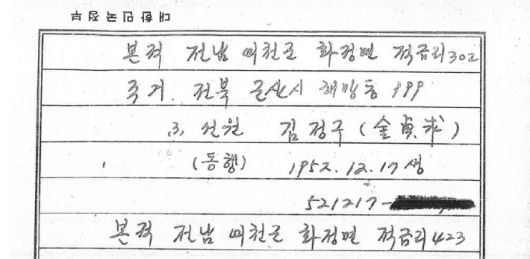 대한민국정부
본적 전남 여천군 화정면 적금리 302
주거 전북 군산시 해망동 999
3, 선원 김정구 (金貞求)
(동행) 1952. 12. 17 생
521217-
본적 전남 여천군 화정면 적금리 423